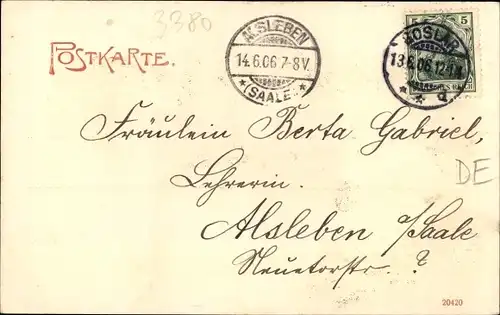 3380
POSTKARTE.
ALSLEBEN
14.6.06 7-8V.
*(SAALE)*
GOSLAR
13.6.06.12-1N.
* * d.
5 5
DEUTSCHES REICH
Fräulein Berta Gabriel,
DE
Lehrerin.
Alsleben a/Saale
Neuetorstr. ?
20420